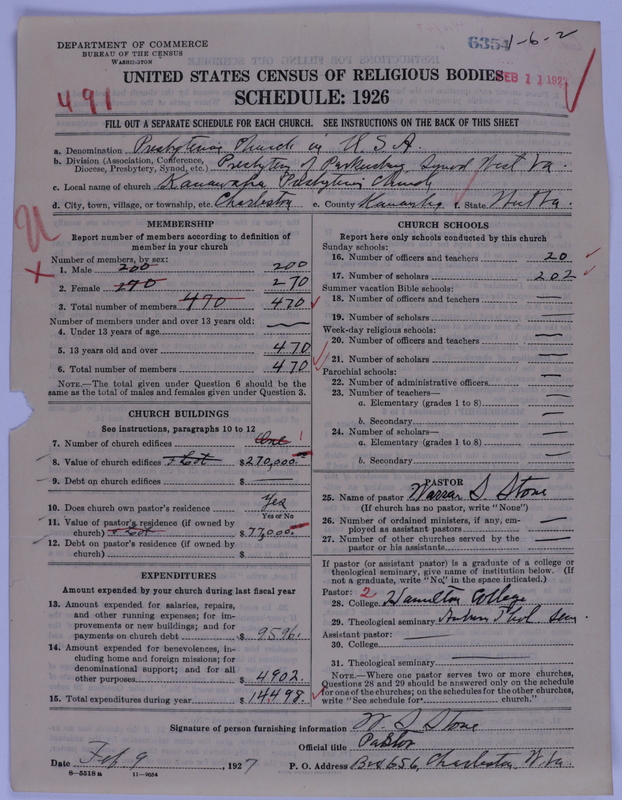 DEPARTMENT OF COMMERCE
BUREAU OF THE CENSUS
WASHINGTON
6354 1-6-2
UNITED STATES CENSUS OF RELIGIOUS BODIES
FEB 11 1927
491
SCHEDULE: 1926
FILL OUT A SEPARATE SCHEDULE FOR EACH CHURCH. SEE INSTRUCTIONS ON THE BACK OF THIS SHEET
a. Denomination Presbyterian Church in U.S.A.
b. Division (Association, Conference, Diocese, Presbytery, Synod, etc.) Presbytery of Parkersburg Synod West Va.
c. Local name of church Kanawha Presbyterian Church
d. City, town, village, or township, etc. Charleston e. County Kanawha f. State West Va.
MEMBERSHIP
Report number of members according to definition of member in your church
Number of members, by sex:
1. Male 200 200
2. Female 270 270
3. Total number of members 470 470
Number of members under and over 13 years old:
4. Under 13 years of age —
5. 13 years old and over 470
6. Total number of members 470
NOTE.—The total given under Question 6 should be the same as the total of males and females given under Question 3.
CHURCH BUILDINGS
See instructions, paragraphs 10 to 12
7. Number of church edifices One 1
8. Value of church edifices & Lot $270,000.
9. Debt on church edifices $ —
10. Does church own pastor's residence Yes
Yes or No
11. Value of pastor's residence (if owned by church) & Lot $77,000.
12. Debt on pastor's residence (if owned by church) $
EXPENDITURES
Amount expended by your church during last fiscal year
13. Amount expended for salaries, repairs, and other running expenses; for improvements or new buildings; and for payments on church debt $ 9596.
14. Amount expended for benevolences, including home and foreign missions; for denominational support; and for all other purposes $ 4902.
15. Total expenditures during year $ 14498.
CHURCH SCHOOLS
Report here only schools conducted by this church
Sunday schools:
16. Number of officers and teachers 20
17. Number of scholars 202
Summer vacation Bible schools:
18. Number of officers and teachers —
19. Number of scholars —
Week-day religious schools:
20. Number of officers and teachers —
21. Number of scholars —
Parochial schools:
22. Number of administrative officers —
23. Number of teachers—
a. Elementary (grades 1 to 8) —
b. Secondary —
24. Number of scholars—
a. Elementary (grades 1 to 8) —
b. Secondary —
PASTOR
25. Name of pastor Warren S. Stone
(If church has no pastor, write "None")
26. Number of ordained ministers, if any, employed as assistant pastors —
27. Number of other churches served by the pastor or his assistants —
If pastor (or assistant pastor) is a graduate of a college or theological seminary, give name of institution below. (If not a graduate, write "No," in the space indicated.)
Pastor: 2
28. College Hamilton College
29. Theological seminary Auburn Theol. Sem.
Assistant pastor: —
30. College
31. Theological seminary —
NOTE.—Where one pastor serves two or more churches, Questions 28 and 29 should be answered only on the schedule for one of the churches; on the schedules for the other churches, write "See schedule for church."
Signature of person furnishing information W. S. Stone
Official title Pastor
Date Feb 9, 1927 P. O. Address Box 656, Charleston W. Va.
8—5518 a 11—9654